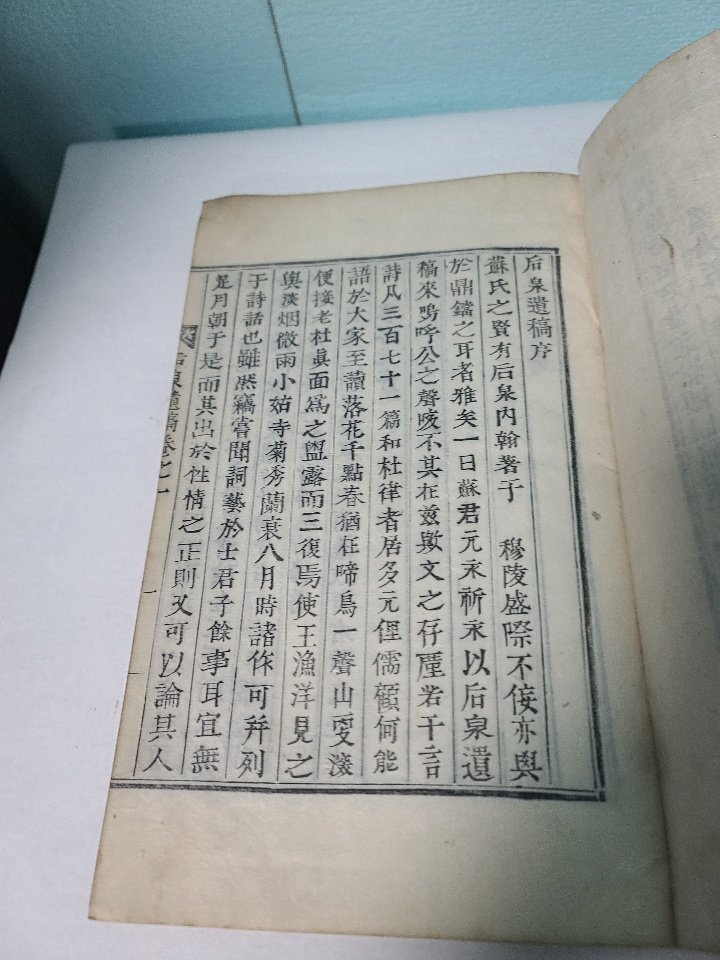 后泉遺稿序
蘇氏之賢有后泉內翰著于 穆陵盛際不佞亦與
於鼎鐺之耳者雅矣一日蘇君元永祈永以后泉遺
稿來嗚呼公之聲咳不其在玆歟文之存廑若干言
詩凡三百七十一篇和杜律者居多元俚儒顧何能
語於大家至讀落花千點春猶在啼鳥一聲山更淡
便接老杜眞面爲之盥露而三復焉使王漁洋見之
與淡烟微雨小姑寺菊秀蘭衰八月時諸作可幷列
于詩話也雖然竊嘗聞詞藝於士君子餘事耳宜無
足月朝于是而其出於性情之正則又可以論其人
后泉遺稿卷之一